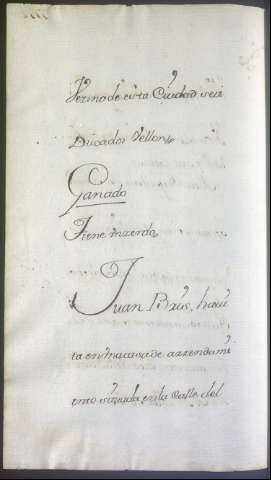 Vezino de esta Ciudad seis
Ducados Vellon
Ganado
Tiene un zerdo
Juan Brus, havi
ta en una casa de arrendami
ento situada en la calle del